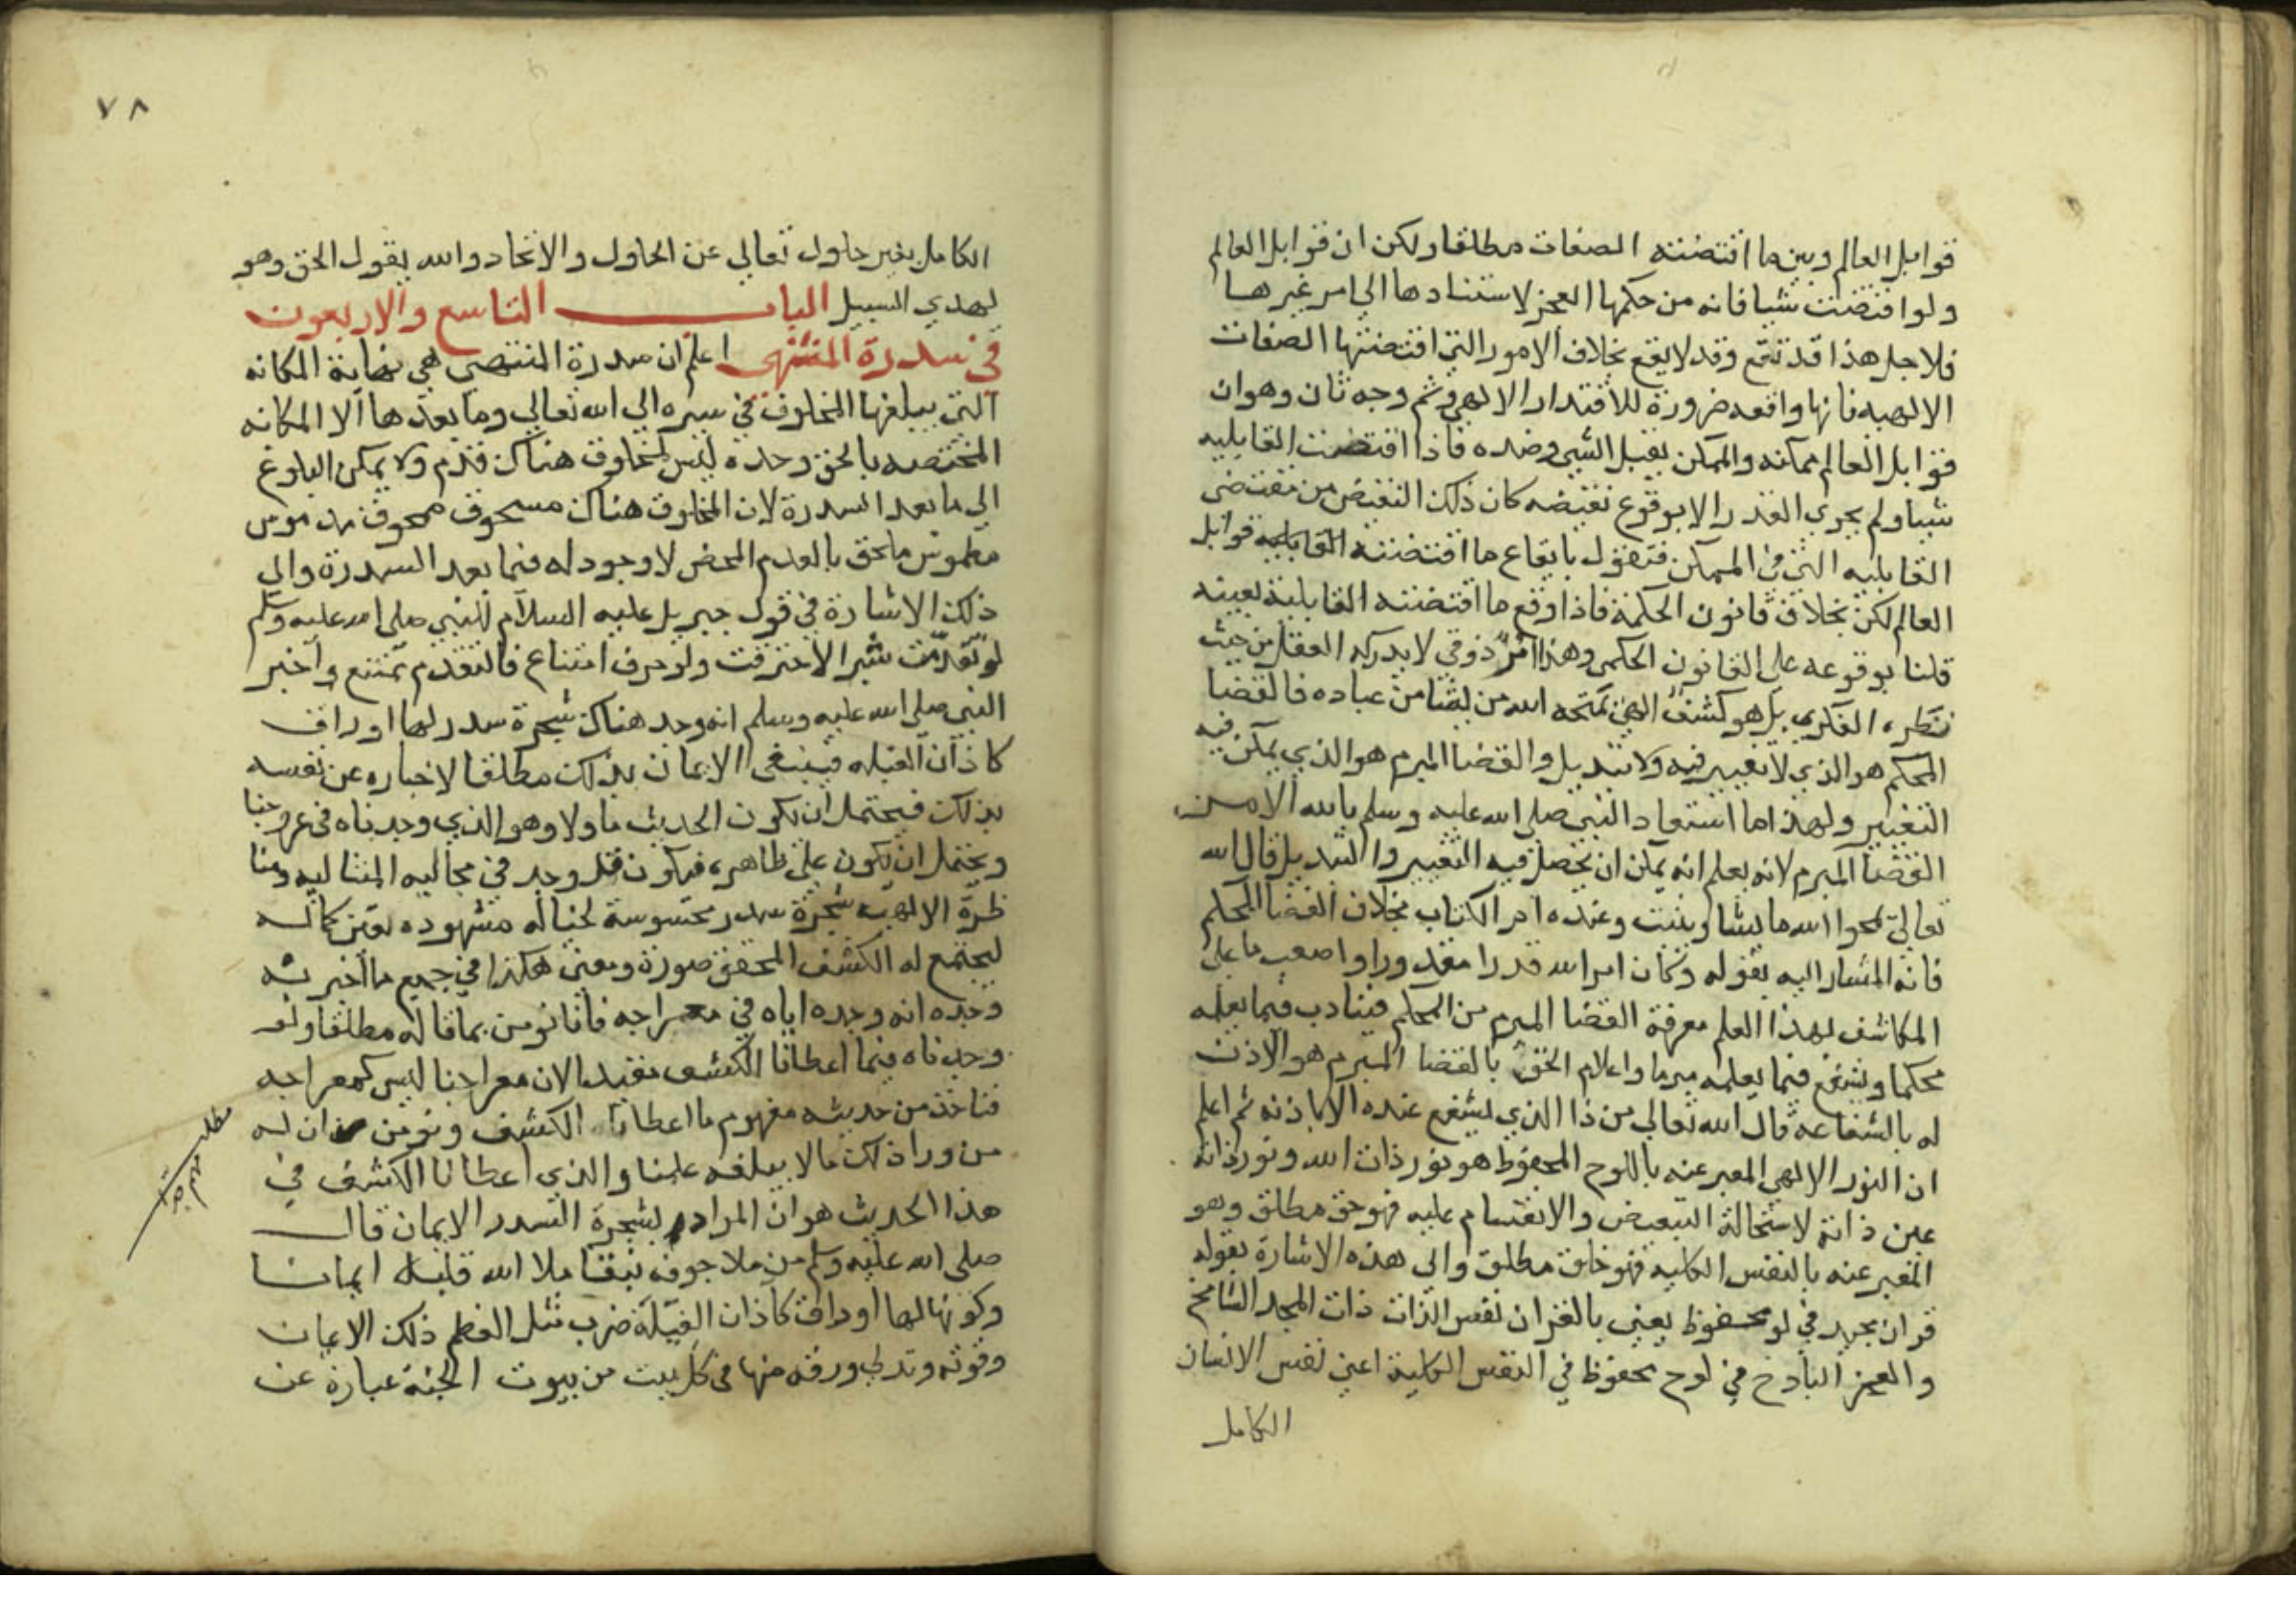 قوابل العالم وبين ما اقتضته الصفات مطلقا ولكن ان قوابل العالم
ولو اقتضت شيا فانه من حكمها العجز لاستنادها الي امر غيرها
فلاجل هذا قد تقع وقد لا يقع بخلاف الامور التي اقتضتها الصفات
الالهيه فانها واقعه ضرورة للاقتدار الالهي وثم وجه ثان وهو ان
قوابل العالم ممكنه والممكن يقبل الشي وضده فاذا اقتضت القابليه
شيا ولم يجري القدر الا بوقوع نقيضه كان ذلك النقيض من مقتضى
القابليه التي في الممكن فنقول بايقاع ما اقتضته القابليه قوابل
العالم لكن بخلاف قانون الحكمة فاذا وقع ما اقتضته القابلية بعينه
قلنا بوقوعه على القانون الحكمي وهذا امرٌ ذوقي لا يدركه العقل من حيث
نظره الفكري بل هو كشف الهي يمنحه الله من يشا من عباده فالقضا
المحكم هو الذي لا تغيير فيه ولا تبديل والقضا المبرم هو الذي يمكن فيه
التغيير ولهذا ما استعاد النبي صلى الله عليه وسلم بالله الا من
القضا المبرم لانه يعلم انه يمكن ان يحصل فيه التغيير والتبديل قال الله
تعالى يمحوا الله ما يشا ويثبت وعنده ام الكتاب بخلاف القضا المحكم
فانه المشار اليه بقوله وكان امر الله قدرا مقدورا واصعب ما على
المكاشف لهذا العلم معرفة القضا المبرم من المحكم فيتادب فيما يعلمه
محكما ويشفع فيما يعلمه مبرما واعلام الحق بالقضا المبرم هو الاذن
له بالشفاعه قال الله تعالى من ذا الذي يشفع عنده الا باذنه ثم اعلم
ان النور الالهي المعبر عنه باللوح المحفوظ هو نور ذات الله ونور ذاته
عين ذاته لاستحالة التبعيض والانقسام عليه فهو حق مطلق وهو
المعبر عنه بالنفس الكليه فهو خلق مطلق والى هذه الاشارة بقوله
قران مجيد في لوح محفوظ يعني بالقران نفس الذات ذات المجد الشامخ
والعز الباذخ في لوح محفوظ في النفس الكلية اعني نفس الانسان
الكامل
٧٨
الكامل بغير حلول تعالى عن الحلول والاتحاد والله يقول الحق وهو
يهدي السبيل الباب التاسع والاربعون
في سدرة المنتهى اعلم ان سدرة المنتهى هي نهاية المكانه
التي يبلغها المخلوق في سيره الى الله تعالى وما بعدها الا المكانه
المختصه بالحق وحده ليس لمخلوق هناك قدم ولا يمكن البلوغ
الى ما بعد السدرة لان المخلوق هناك مسحوق ممحوق مدموس
مطموس ملحق بالعدم المحض لا وجود له فيما بعد السدرة والى
ذلك الاشارة في قول جبريل عليه السلام للنبي صلى الله عليه وسلم
لو تقدمت شبرا لاحترقت ولو حرف امتناع فالتقدم ممتنع واخبر
النبي صلى الله عليه وسلم انه وجد هناك شجرة سدر لها اوراق
كاذان الفيله فينبغي الايمان بذلك مطلقا لاخباره عن نفسه
بذلك فيحتمل ان يكون الحديث ماولا وهو الذي وجدناه في عروجنا
ويحتمل ان يكون على ظاهره فيكون قد وجد في مجاليه المثاليه ومنا
ظرة الالهيه شجرة سدر محسوسة لخياله مشهوده بعين كماله
ليجتمع له الكشف المحقق صورة ومعنى هكذا في جميع ما اخبر به
وجده انه وجده اياه في معراجه فانا نومن بما قاله مطلقا ولو
وجدناه فيما اعطانا الكشف مقيدا لان معراجنا ليس كمعراجه
فناخذ من حديثه مفهوم ما اعطانا الكشف ونومن ان له
من ورا ذلك ما لا يبلغه علمنا والذي اعطانا الكشف في
هذا الحديث هو ان المراد بشجرة السدر الايمان قال
صلى الله عليه وسلم من ملا جوفه نبقا ملا الله قلبه ايمانا
وكونها لها اوراق كاذان الفيلة ضرب مثل لعظم ذلك الايمان
وقوته وتدلي ورقه منها في كل بيت من بيوت الجنة عبارة عن
مطلب